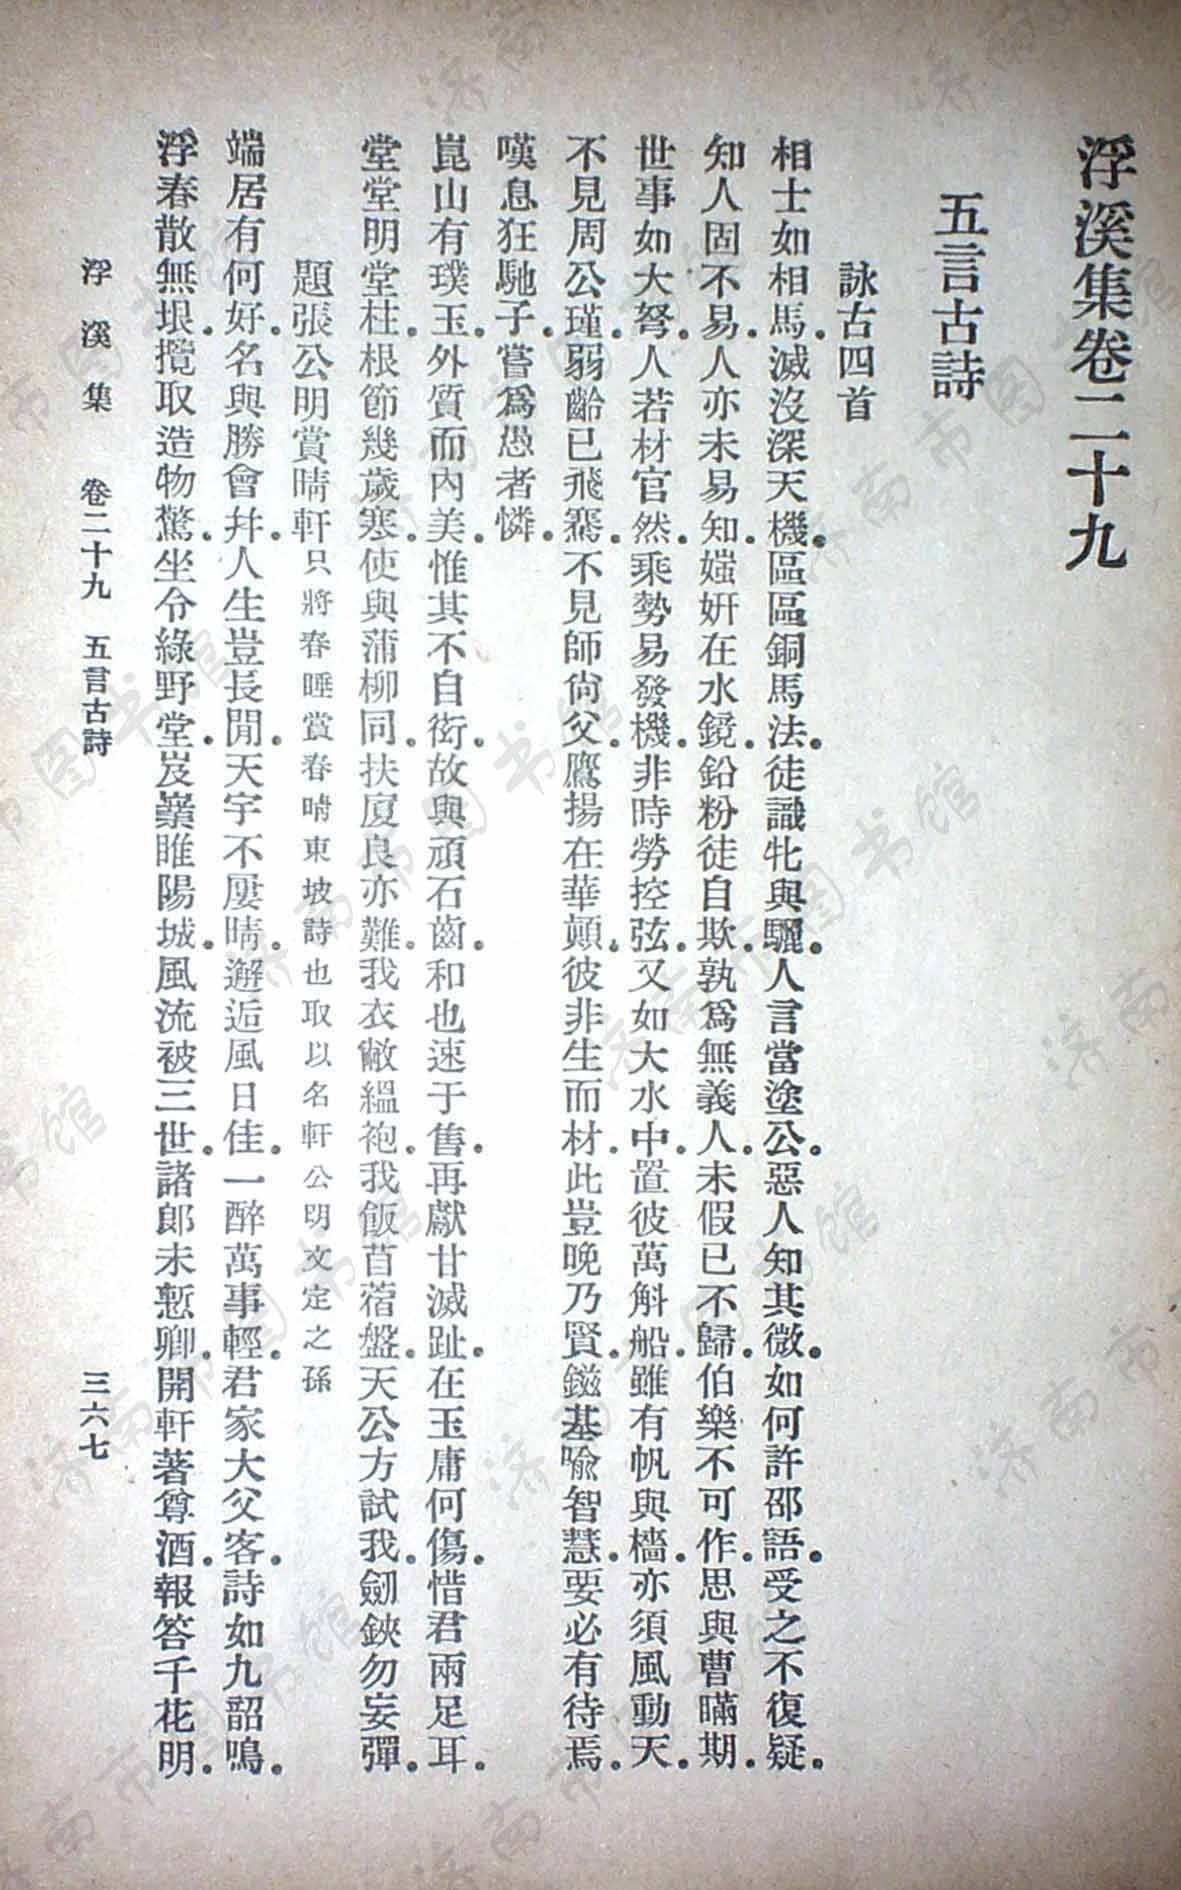 浮溪集卷二十九
五言古詩
詠古四首
相士如相馬。滅沒深天機。區區銅馬法。徒識牝與驪。人言當塗公。惡人知其微。如何許邵語。受之不復疑。
知人固不易。人亦未易知。媸姸在水鏡。鉛粉徒自欺。孰爲無義人。未假已不歸。伯樂不可作。思與曹瞞期。
世事如大弩。人若材官然。乘勢易發機。非時勞控弦。又如大水中。置彼萬斛船。雖有帆與檣。亦須風動天。
不見周公瑾。弱齡已飛騫。不見師尙父。鷹揚在華顛。彼非生而材。此豈晚乃賢。鎡基喩智慧。要必有待焉。
嘆息狂馳子。嘗爲愚者憐。
崑山有璞玉。外質而內美。惟其不自衒。故與頑石齒。和也速于售。再獻甘滅趾。在玉庸何傷。惜君兩足耳。
堂堂明堂柱。根節幾歲寒。使與蒲柳同。扶廈良亦難。我衣敝縕袍。我飯苜蓿盤。天公方試我。劒鋏勿妄彈。
題張公明賞晴軒 只將春睡賞春晴東坡詩也取以名軒公明文定之孫
端居有何好。名與勝會幷。人生豈長閒。天宇不屢晴。邂逅風日佳。一醉萬事輕。君家大父客。詩如九韶鳴。
浮春散無垠。攬取造物驚。坐令綠野堂。岌嶪睢陽城。風流被三世。諸郞未慙卿。開軒著尊酒。報答千花明。
浮溪集 卷二十九 五言古詩 三六七
济南市图书馆